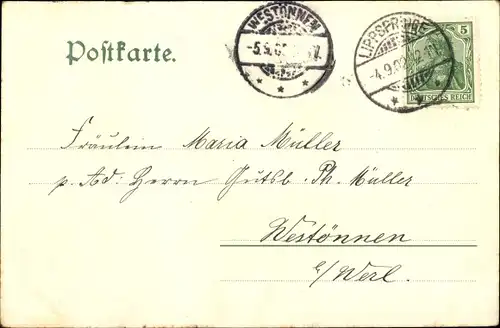 Postkarte.
WESTÖNNEN
LIPPSPRINGE
5
DEUTSCHES REICH
Fräulein Maria Müller
p. Ad: Herrn Gutsb. Ph. Müller
Westönnen
b/Werl.